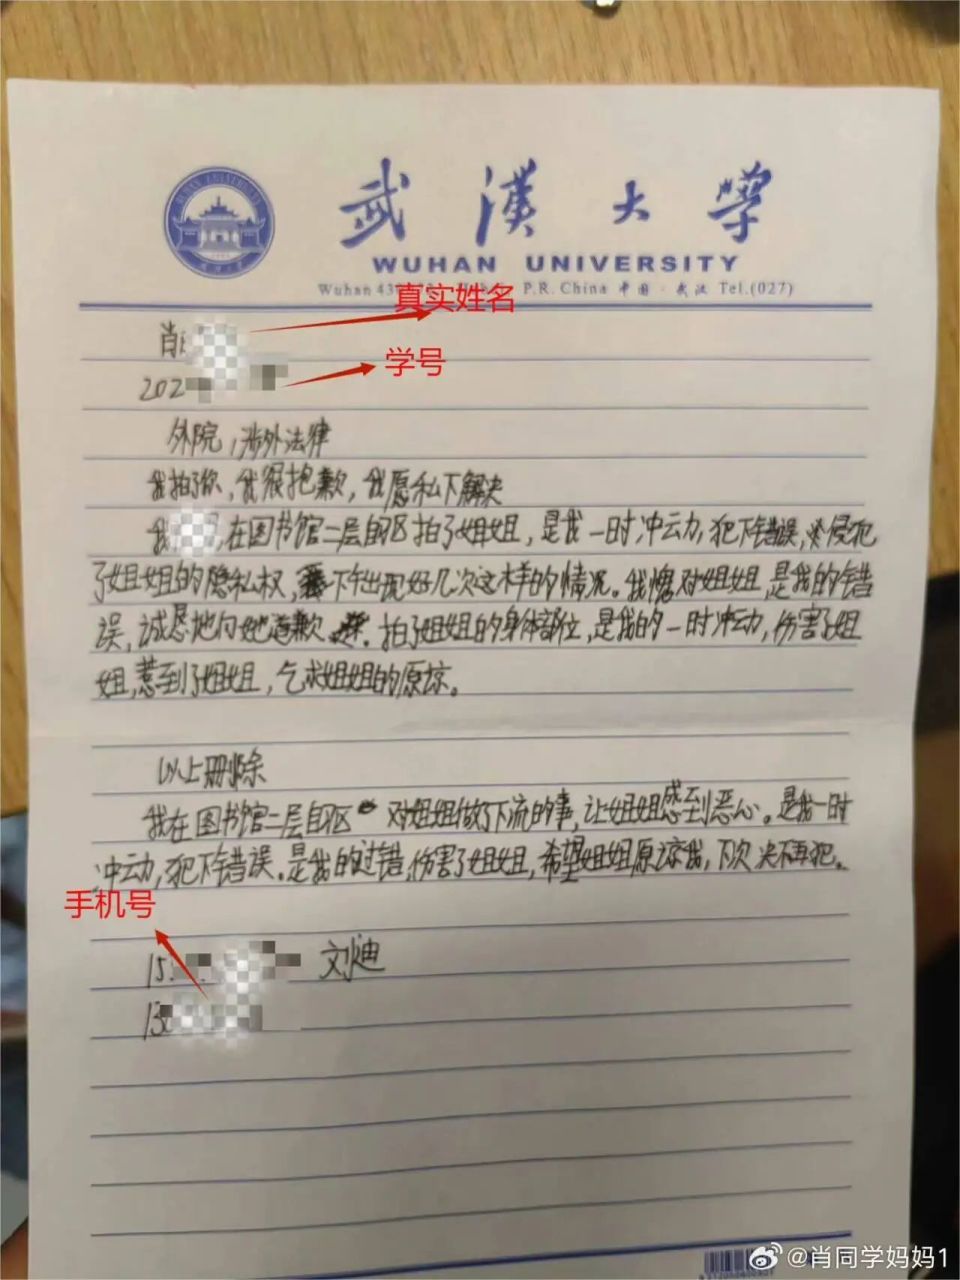 武漢大學
WUHAN UNIVERSITY
Wuhan P.R. China 中国·武汉 Tel.(027)
真实姓名
肖
学号
202
外院,涉外法律
我拍了你,我很抱歉,我愿私下解决
我 ,在图书馆二层自习区拍了姐姐,是我一时冲动,犯下错误,侵犯
了姐姐的隐私权, 下午出现好几次这样的情况。我愧对姐姐,是我的错
误,诚恳地向她道歉 . 拍了姐姐的身体部位,是我的一时冲动,伤害了姐
姐,惹到了姐姐,乞求姐姐的原谅。
以上删除
我在图书馆二层自习区 对姐姐做了下流的事,让姐姐感到恶心。是我一时
冲动,犯下错误。是我的过错,伤害了姐姐,希望姐姐原谅我,下次决不再犯。
手机号
15
13
@肖同学妈妈1